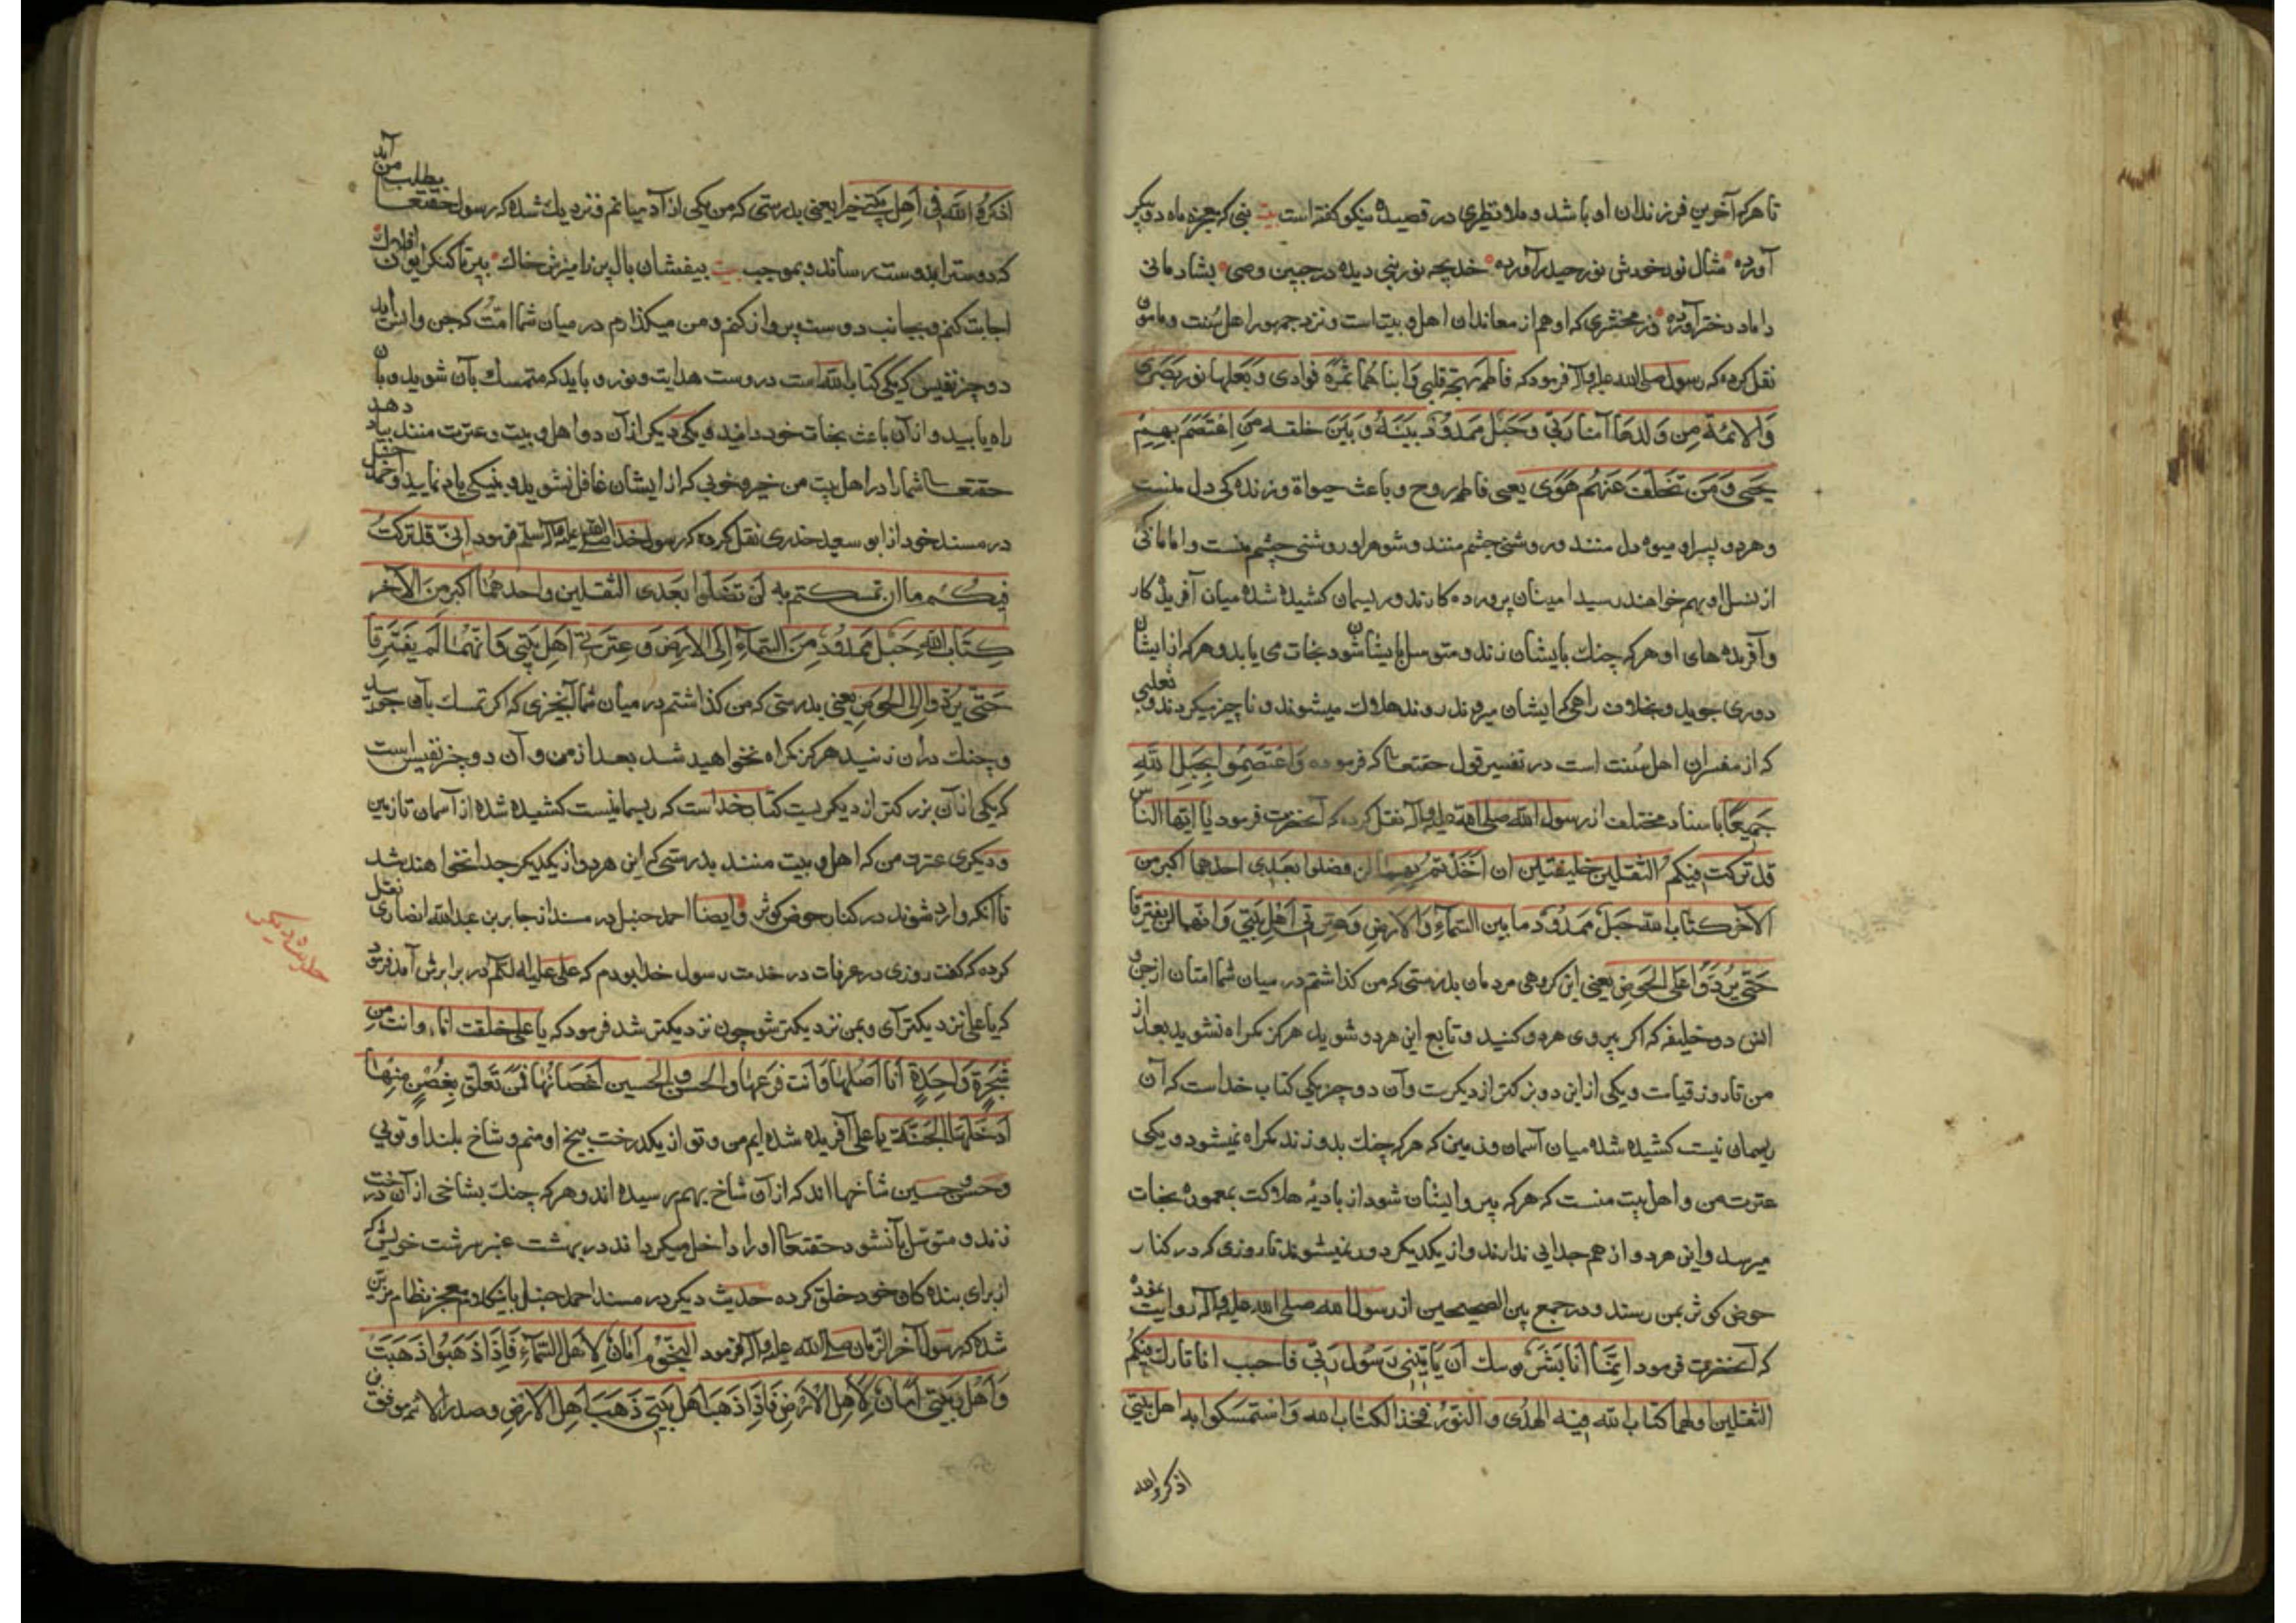 تا هر که آخرین فرزندان او باشد و ملا نظیری در قصیده نیکو گفته است بیت نبی که معجزه ماه دو پیکر
آورده مثال نور خودش نور حیدر آورده خدیجه نور نبی دیده در جبین وصی بشادمانی
داماد دختر آورده و زمخشری که او هم از معاندان اهل بیت است و نزد جمهور اهل سنت و مامون
نقل کرده که رسول صلی الله علیه وآله فرمود که فاطمة بهجة قلبی وَابناهُمَا ثمرَةُ فوادی وَبَعلها نور بَصَری
وَالائمة مِن وَلدهَا اُمنا رَبّی وَحَبل مَمدُوْد بَینَهُ وَبَینَ خلقه مَنِ اعْتصَمَ بهِمْ
یحیی وَمَن تَخَلّفَ عَنهُم هَوٰی یعنی فاطمه روح و باعث حیواة و زنده کی دل منست
و هر دو پسر او میوه دل منند و روشنی چشم منند و شوهر او روشنی چشم منست و امامانی که
از نسل او بهم خواهند رسید امینان پرورده کارند و ریسمان کشیده شده میان آفریدکار
و آفریده های او هر که چنک بایشان زند و متوسل بایشان شود نجات می یابد و هر که از ایشان
دوری جوید و بخلاف راهی که ایشان میروند رود هلاک میشوند و ناچیز میکردند و ثعلبی
که از مفسران اهل سنت است در تفسیر قول حقتعا که فرموده وَاعْتَصِمُوا بِحَبلِ اللهِ
جَمیعًا باسناد مختلف از رسول الله صلی الله علیه وآله نقل کرده که آنحضرت فرمود یا ایّها الناس
قد ترکت فیکم الثقلین خلیفتین ان اَخَذْتم بهما لن تضلوا بعدی احدهما اکبر من
الآخر کتاب الله حبل مَمدُوْد ما بین السّماءِ وَالارضِ وَعِترَتی اَهْل بَیتی وَانّهما لن یفترقا
حَتّی یَرِدَوُا علی الحَوض یعنی ای کروهی مردمان بدرستی که من کذاشتم در میان شما امتان از جن و
انس دو خلیفه که اکر پیروی هر دو کنید و تابع این هر دو شوید هرکز کمراه نشوید بعد از
من تا روز قیامت و یکی از این دو بزرکتر از دیکریست و آن دو چیز یکی کتاب خداست که آن
ریسمانیست کشیده شده میان آسمان و زمین که هر که چنک بدو زند کمراه نمیشود و یکی
عترت من و اهل بیت منست که هر که پیرو ایشان شود از بادیهٔ هلاکت بمعموره نجات
میرسد و این هر دو از هم جدایی ندارند و از یکدیکر دور نمیشوند تا روزی که در کنار
حوض کوثر بمن رسند و در جمع بین الصحیحین از رسول الله صلی الله علیه وآله روایت نموده
که آنحضرت فرمود انِمَّا اَنَا بَشَر یوسک اَن یَاتینی رَسُول رَبّی فاجیب انا تارک فیکُم
الثقلین اولهما کتاب الله فیه الهدٰی والنّوْرُ فخذ الکتاب الله وَاستمسَکوا به اهل بیتی
اذکروالله
اذکروا الله فی اَهل بَیتی خیرا یعنی بدرستی که من یکی از آدمیانم و نزدیک شده که رسول حقتعا بطلب من آید
که دوست را بدوست رساند و بموجب بیت بیفشان بال و پر زامیزش خاک بپر تا کنکر ایوان افلاک
اجابت کنم و بجانب دوست پرواز کنم و من میکذارم در میان شما امّت که جن و انس اید
دو چیز نفیس که یکی کتاب الله است در وست هدایت و نور و باید که متمسک بآن شوید و بآن
راه یابید و از آن باعث نجات خود دانید و یکی دیکر از آن دو اهل بیت و عترت منند بیاد دهد
حقتعا شما را در اهل بیت من خیر و خوبی که از ایشان غافل نشوید و به نیکی یاد نمایید و احمد حنبل
در مسند خود از ابو سعید خدری نقل کرده که رسول خدا صلی الله علیه وآله وسلم فرمود انی قد ترکتُ
فیکُم ما ان تمسکتم به لن تضلّوا بَعدی الثقلین واحدهمُا اکبر مِنَ الآخر
کِتاب الله حَبْل مَمدُوْد مِنَ السَّماءِ اِلَی الارْضِ وَعِترَتی اَهْل بَیتی وَانّهمُا لَم یَفتَرِقا
حَتّی یَرِدُوا الِی الحَوض یعنی بدرستی که من کذاشتم در میان شما آنچیزی که اکر تمسک بآن جوئید
و چنک در آن زنید هرکز کمراه نخواهید شد بعد از من و آن دو چیز نفیس است
که یکی از آن بزرکتر از دیکریست کتاب خداست که ریسمانیست کشیده شده از آسمان تا زمین
و دیکری عترت من که اهل بیت منند بدرستی که این هر دو از یکدیکر جدا نخواهند شد
تا آنکه وارد شوند در کنار حوض کوثر وایضا احمد حنبل در مسند از جابر بن عبدالله انصاری نقل
کرده که کفت روزی در عرفات در خدمت رسول خدا بودم که علی علیه السلام در برابرش آمد فرمود
که یا علی نزدیکتر آی و بمن نزدیکتر شو چون نزدیکتر شد فرمود که یا علی خلقت انا وانت من
شجَرةٍ وَاحِدَةٍ اَنا اَصلُهَا وَاَنت فَرعُهَا والحسن والحسین اَغصَانُهَا فمَن تَعلّق بِغُصْنٍ مِنهَا
اَدخلَهَا الجَنّة یا علی آفریده شده ایم من و تو از یکدرخت بیخ او منم و شاخ بلند او توئی
وحسن وحسین شاخها اند که از آن شاخ بهم رسیده اند و هر که چنک بشاخی از آن درخت
زند و متوسل بآنشود حقتعا او را داخل میکرداند در بهشت عنبر سرشت خویش که
از برای بنده کان خود خلق کرده حدیث دیکر در مسند احمد حنبل باین کلام معجز نظام مزین
شده که رسول آخر الزمان صلی الله علیه وآله فرمود النّجوُم اَمَانٌ لِاَهْل السَّماءِ فَاِذَا ذَهَبُوا ذَهَبَت
وَاَهْل بَیتی اَمَانٌ لِاَهِل الْاَرضِ فَاِذَا ذَهَبَ اَهْل بَیتی ذَهَبَ اَهِل الارْضِ و صدر الائمه موفق بن
حدیث دیکر